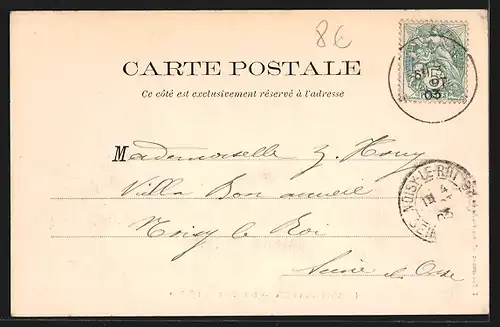 8€
CARTE POSTALE
Ce côté est exclusivement réservé à l'adresse
Mademoiselle
Villa Bon accueil
Noisy le Roi
Seine et Oise
NOISY-LE-ROI
03